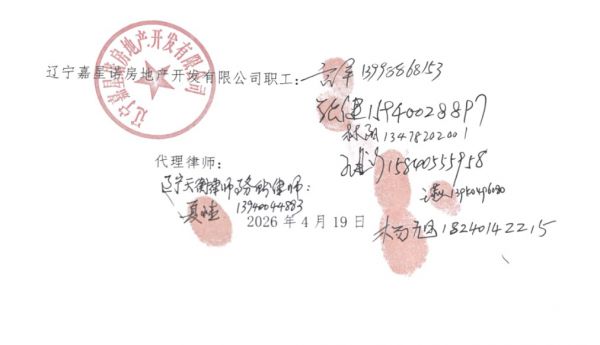 辽宁嘉星诺房地产开发有限公司
辽宁嘉星诺房地产开发有限公司职工：
13998868153
张建 15940028897
林阳 13478202001
代理律师：
15840555958
辽宁天衡律师事务所律师：
13940044883
2026年4月19日
杨旭 18240142215